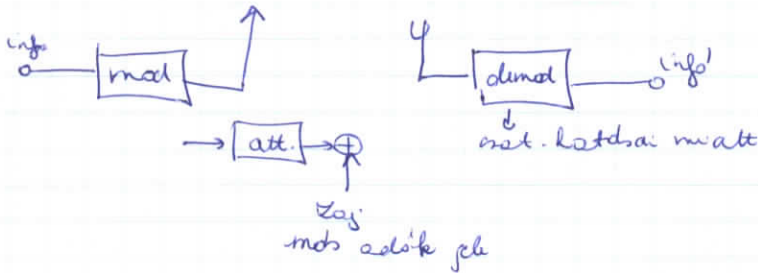 info
mod
demod
info'
att.
csat. hatásai miatt
zaj
más adók jele